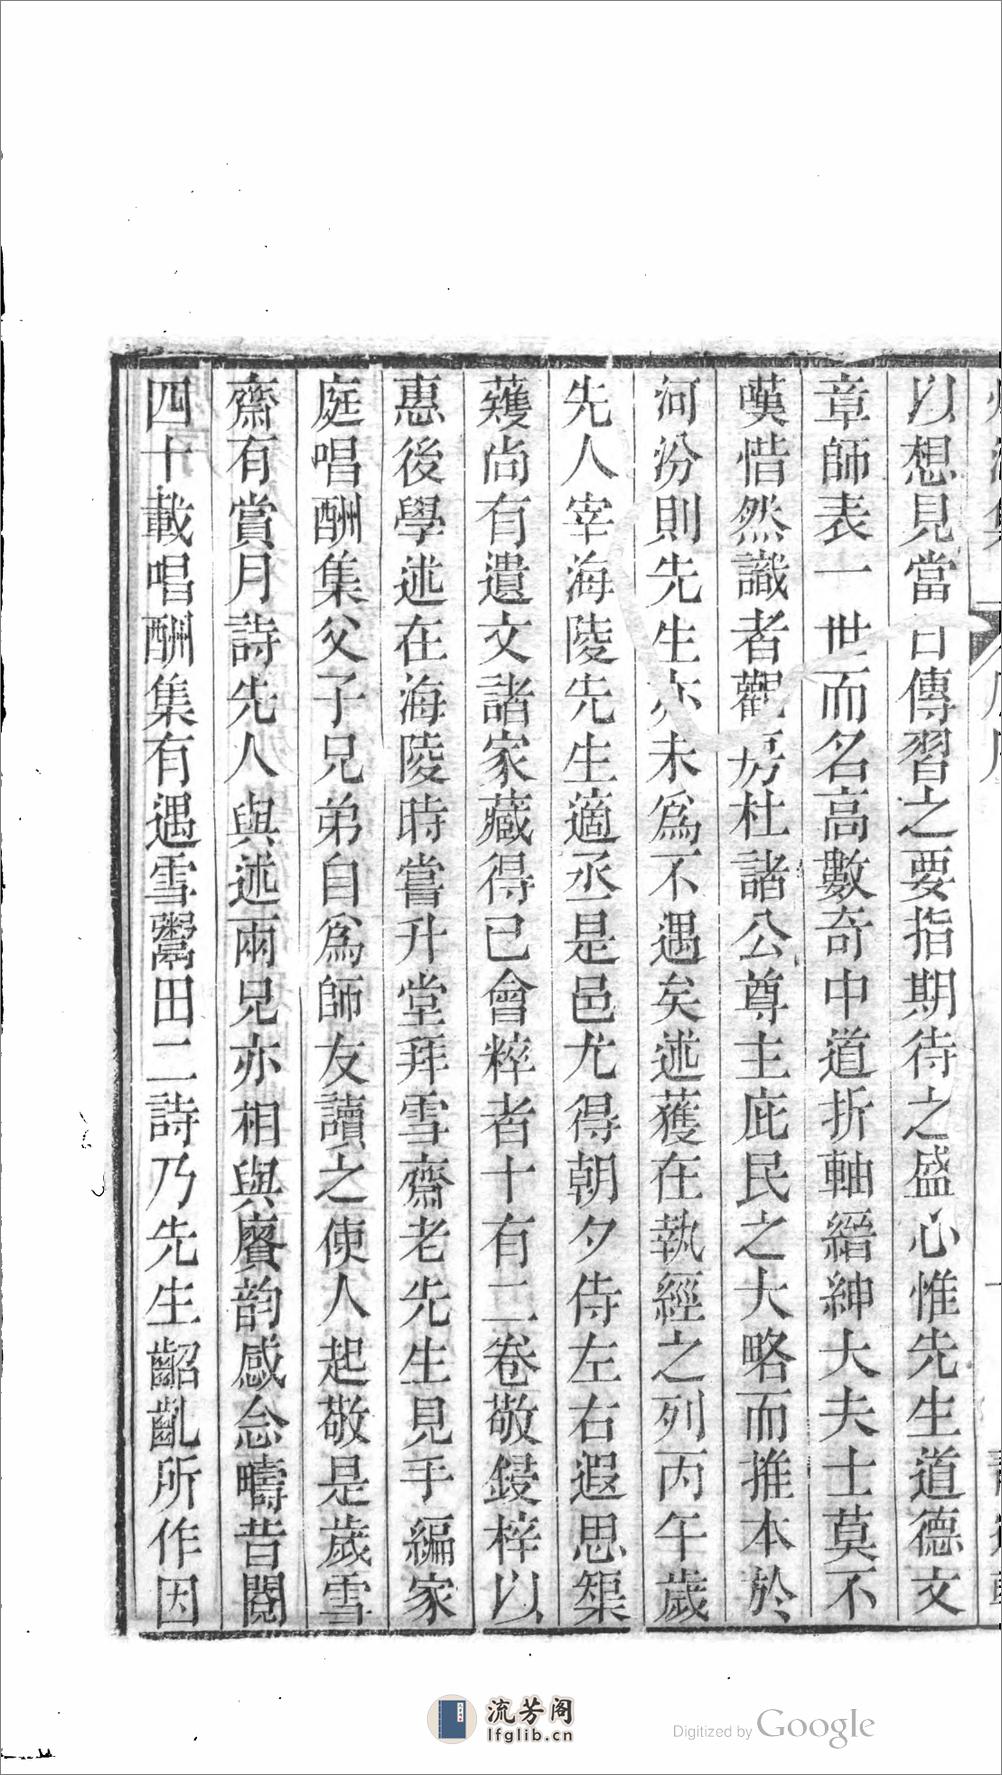 以想見當日傳習之要指期待之盛心惟先生道德文
章師表一世而名高數奇中道折軸縉紳大夫士莫不
嘆惜然識者觀房杜諸公尊主庇民之大略而推本於
河汾則先生亦未為不遇矣述獲在執經之列丙午歲
先人宰海陵先生適丞是邑尤得朝夕侍左右遐思榘
蒦尚有遺文諸家藏得已會粹者十有二卷敬鋟梓以
惠後學述在海陵時嘗升堂拜雪齋老先生見手編家
庭唱酬集父子兄弟自為師友讀之使人起敬是歲雪
齋有賞月詩先人與述兩兄亦相與賡韵感念疇昔閱
四十載唱酬集有遇雪鬻田二詩乃先生齠齓所作因
流芳阁
lfglib.cn
Digitized by Google